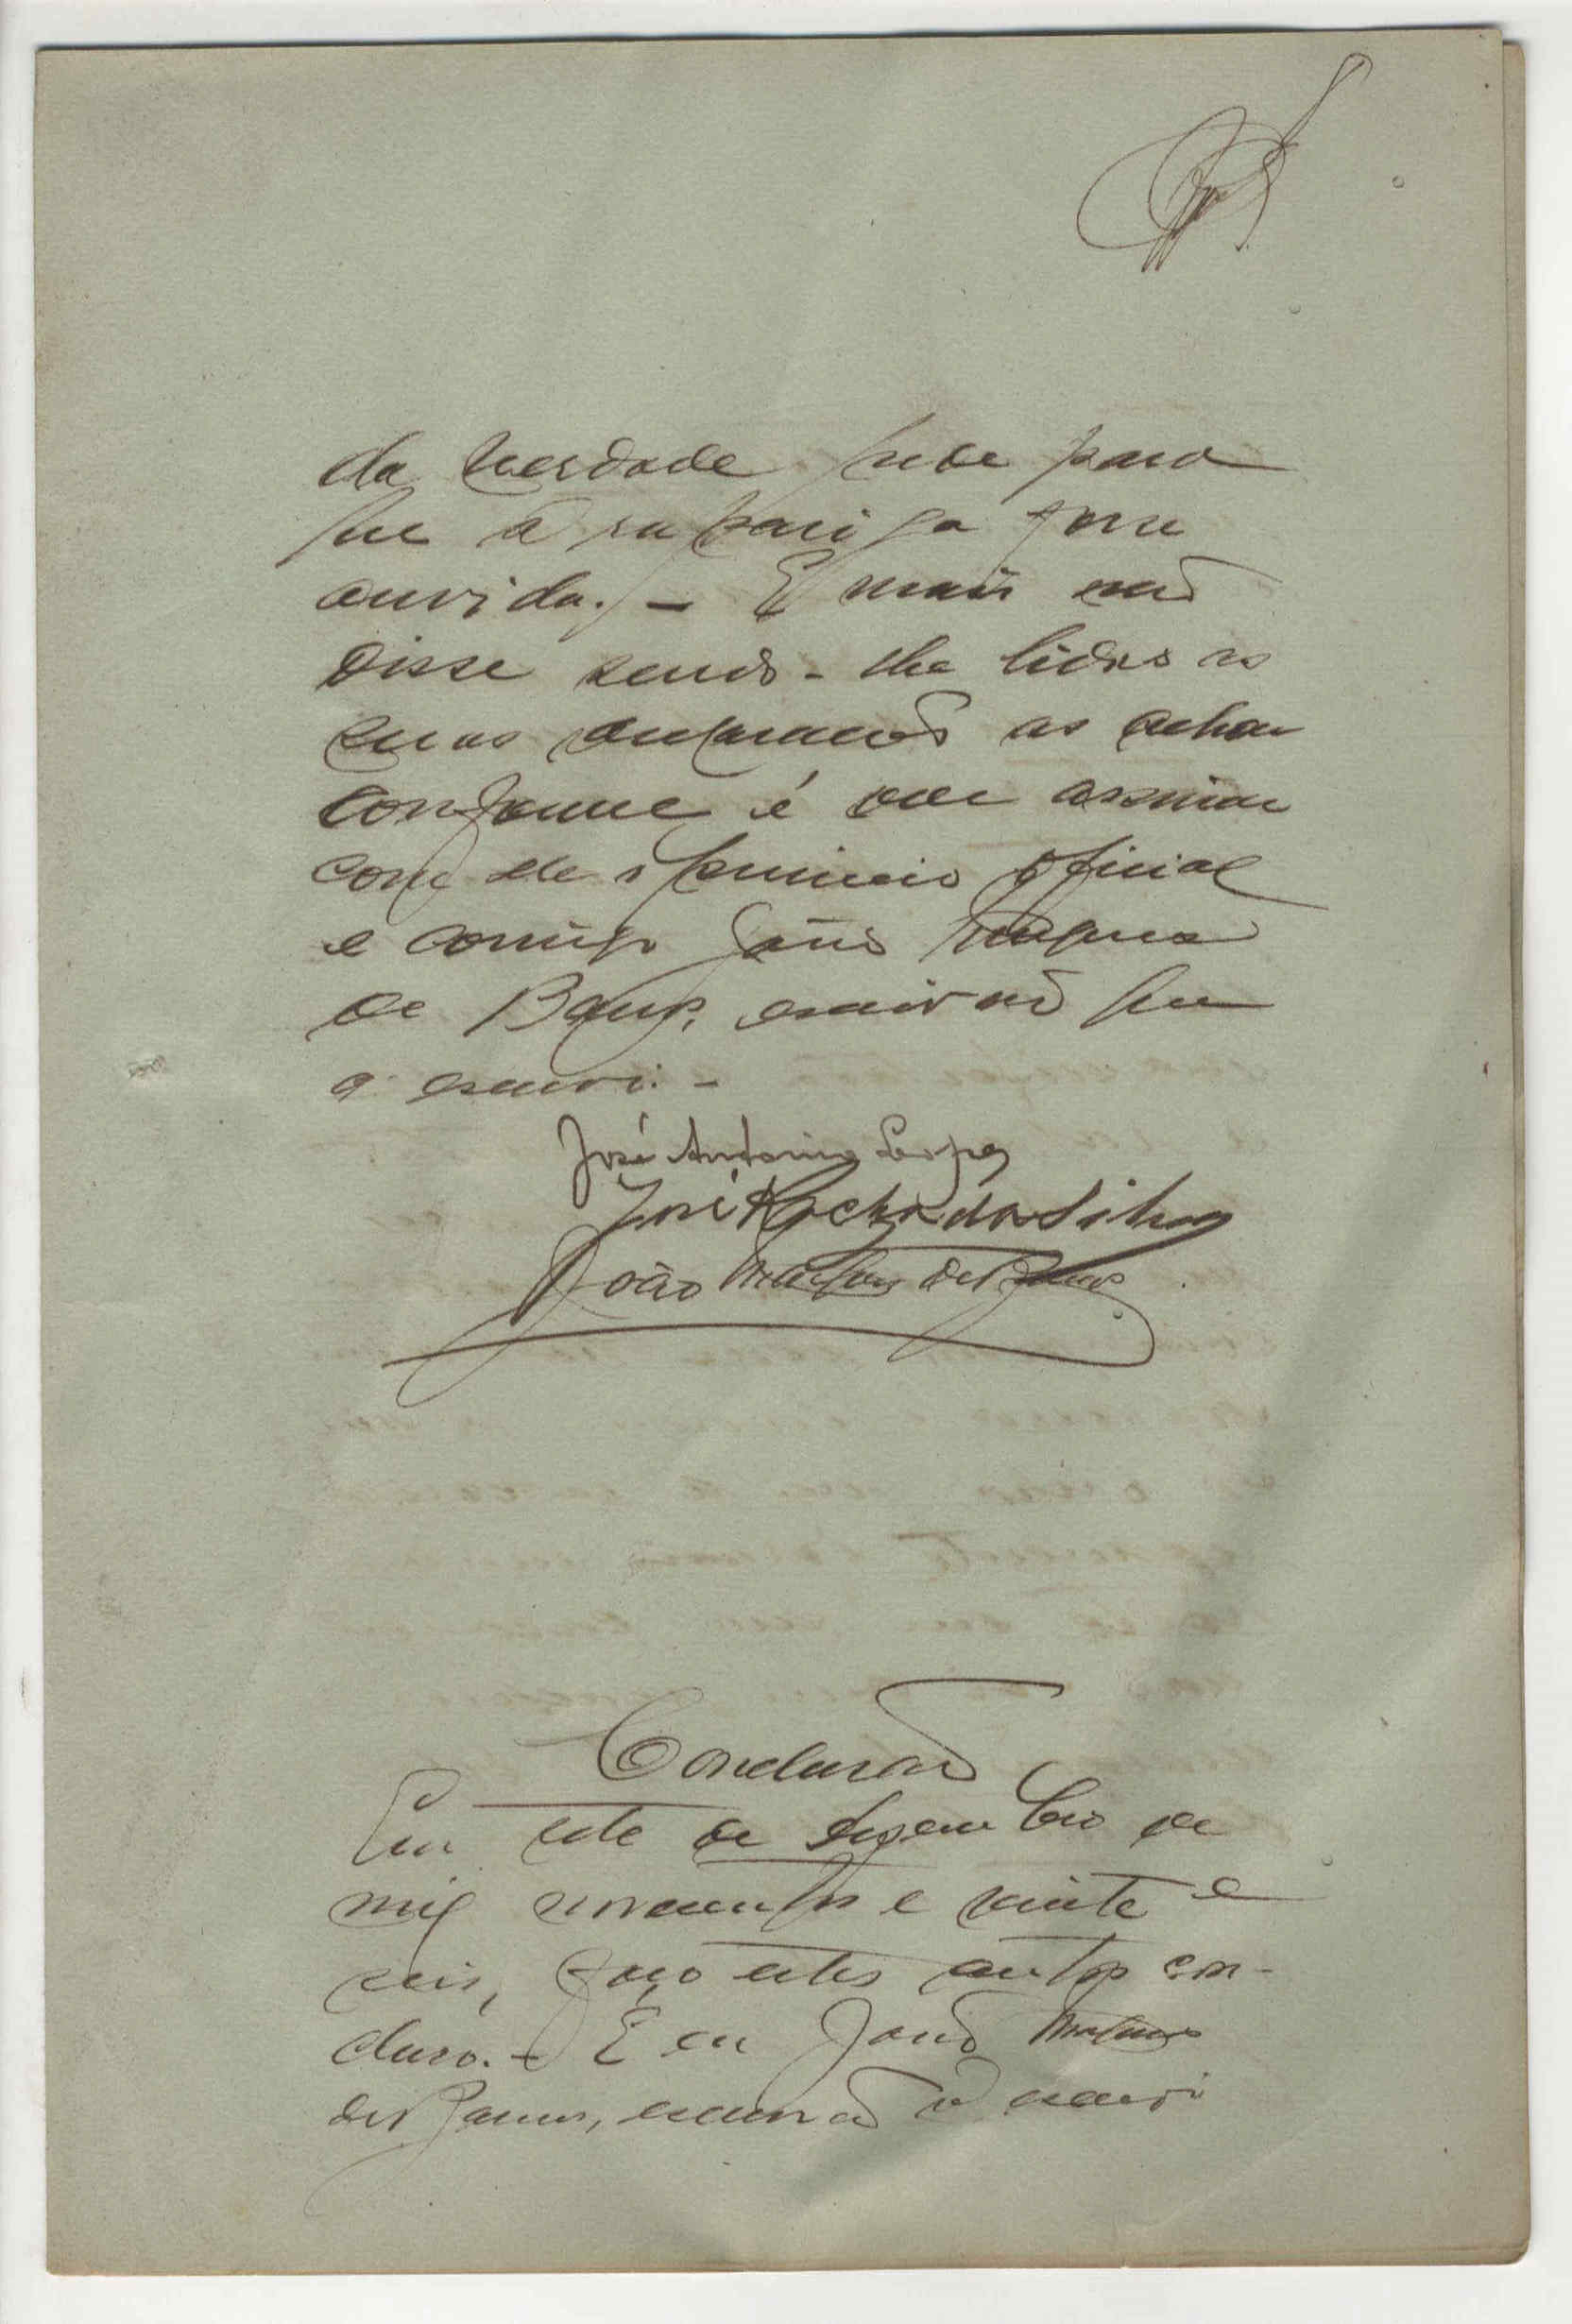 da verdade pede para
que a rapariga fosse
ouvida. - E mais não
disse sendo-lhe lidas as
suas declarações as achou
conforme e vai assinar
com ele o primeiro oficial
e comigo João
de Barros, escrivão que
o escrevi. -
José Antonio Lopes
José Rocha da Silva
João de Barros
Conclusão
Em sete de Dezembro de
mil novecentos e vinte e
seis, faço estes autos con-
cluso. - E eu João
de Barros, escrivão o escrevi